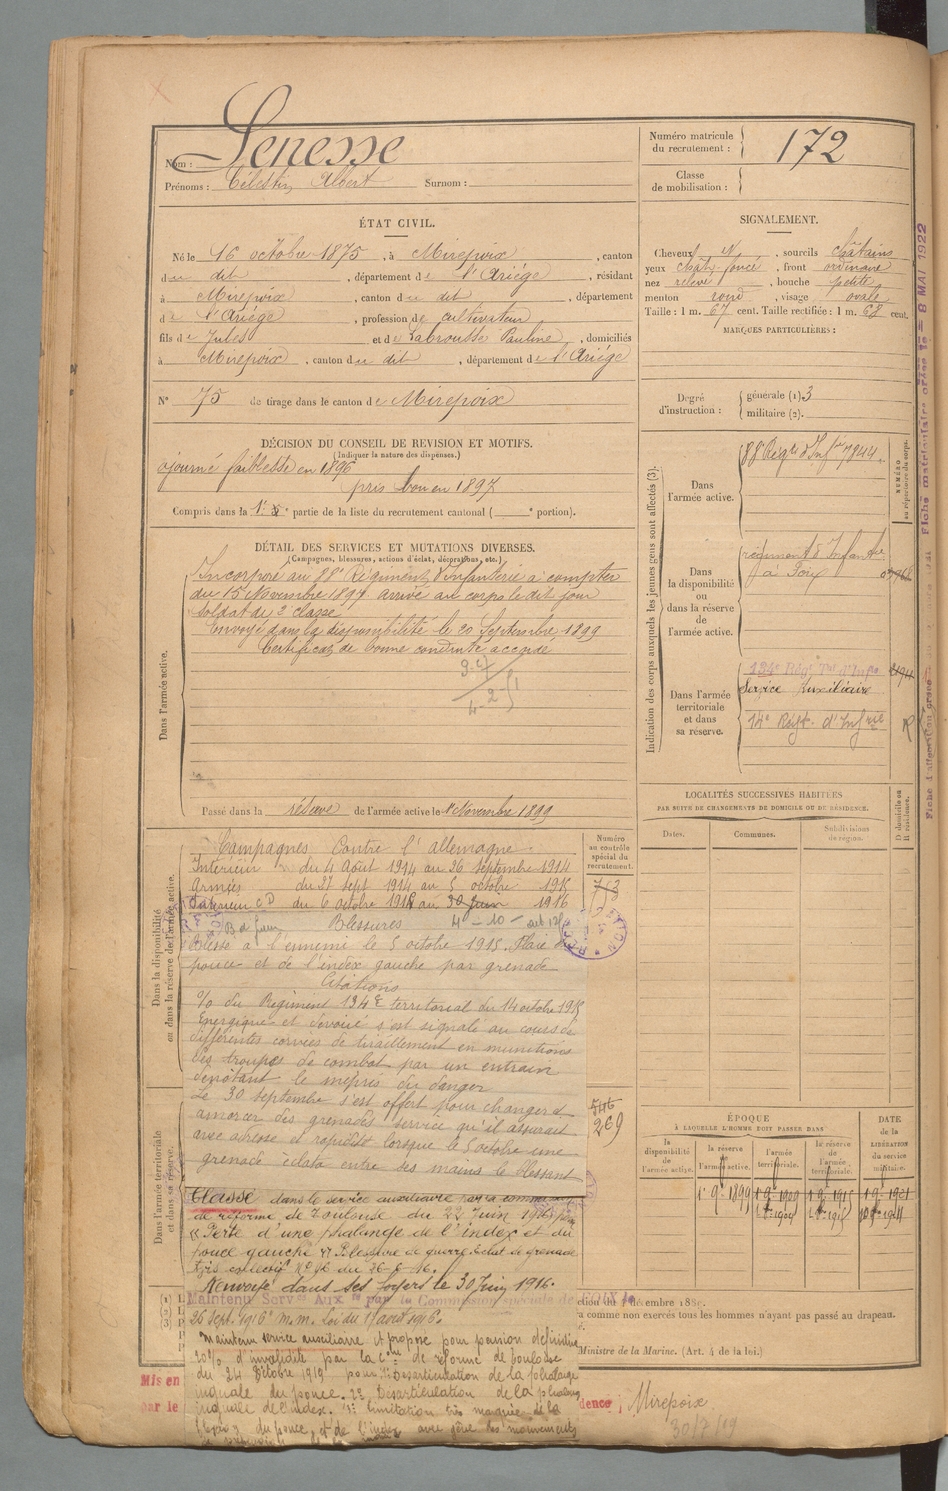 Nom : Senesse
Prénoms : Célestin Albert Surnom :
Numéro matricule du recrutement : 172
Classe de mobilisation :
ÉTAT CIVIL.
Né le 16 octobre 1875, à Mirepoix, canton
du dit, département de l'Ariége, résidant
à Mirepoix, canton du dit, département
de l'Ariége, profession de cultivateur
fils de Jules et de Labrousse Pauline, domiciliés
à Mirepoix, canton du dit, département de l'Ariége
N° 75 de tirage dans le canton de Mirepoix
SIGNALEMENT.
Cheveux N, sourcils châtains
yeux chât. foncé, front ordinaire
nez relevé, bouche petite
menton rond, visage ovale
Taille : 1 m. 67 cent. Taille rectifiée : 1 m. 68 cent.
MARQUES PARTICULIÈRES :
Degré d'instruction : générale (1) 3
militaire (2).
DÉCISION DU CONSEIL DE REVISION ET MOTIFS.
(Indiquer la nature des dispenses.)
ajourné faiblesse en 1896
pris bon en 1897
Compris dans la 1e partie de la liste du recrutement cantonal ( e portion).
DÉTAIL DES SERVICES ET MUTATIONS DIVERSES.
(Campagnes, blessures, actions d'éclat, décorations, etc.)
Dans l'armée active.
Incorporé au 88e Régiment d'Infanterie à compter
du 15 Novembre 1897 arrivé au corps le dit jour
soldat de 2e classe
Envoyé dans la disponibilité le 20 Septembre 1899
Certificat de bonne conduite accordé
Passé dans la réserve de l'armée active le 1er Novembre 1899
Indication des corps auxquels les jeunes gens sont affectés (3).
NUMÉRO au répertoire du corps.
Dans l'armée active.
88e Régt d'Infrie 7844.
Dans la disponibilité ou dans la réserve de l'armée active.
régiment d'Infanterie
à Foix
Dans l'armée territoriale et dans sa réserve.
134e Régt Tal d'Infie
Service Auxiliaire
14e Régt. d'Infrie
LOCALITÉS SUCCESSIVES HABITÉES
PAR SUITE DE CHANGEMENTS DE DOMICILE OU DE RÉSIDENCE.
Dates. Communes. Subdivisions de région. D domicile ou R résidence.
Dans la disponibilité ou dans la réserve de l'armée active.
Numéro au contrôle spécial du recrutement.
753
Campagnes Contre l'allemagne
Intérieur du 4 Août 1914 au 26 septembre 1914
Armées du 27 sept 1914 au 5 octobre 1915
Intérieur CD du 6 octobre 1915 au 30 juin 1916
Blessures
Blessé à l'ennemi le 5 octobre 1915. Plaie du
pouce et de l'index gauche par grenade
Citations
O/ du Régiment 134e territorial du 14 octobre 1915
Energique et dévoué s'est signalé au cours de
différentes corvées de ravitaillement en munitions
des troupes de combat par un entrain
dénotant le mépris du danger
Le 30 septembre s'est offert pour changer et
amorcer des grenades service qu'il assurait
avec adresse et rapidité lorsque le 5 octobre une
grenade éclata entre ses mains le blessant
546
269
Dans l'armée territoriale et dans sa réserve.
Classé dans le service auxiliaire par la commission
de réforme de Toulouse du 22 Juin 1916 pour
"Perte d'une phalange de l'index et du
pouce gauche" Blessure de guerre, éclat de grenade
Renvoyé dans ses foyers le 30 Juin 1916.
Maintenu Serv. Auxre par la Commission spéciale de FOIX le
26 Sept. 1916 m.m. Loi du 17 avril 1916.
Maintenu service auxiliaire et proposé pour pension définitive
20% d'invalidité par la Con de réforme de Toulouse
du 24 Octobre 1919 pour 1° Désarticulation de la phalange
unguéale du pouce. 2° Désarticulation de la phalange
unguéale de l'index. 3° limitation très marquée de la
flexion du pouce et de l'index avec gêne des mouvements
ÉPOQUE
À LAQUELLE L'HOMME DOIT PASSER DANS
la disponibilité de l'armée active. la réserve de l'armée active. l'armée territoriale. la réserve de l'armée territoriale.
DATE de la LIBÉRATION du service militaire.
Fiche matriculaire créée le 8 MAI 1922
ction du décembre 188
a comme non exercés tous les hommes n'ayant pas passé au drapeau.
Ministre de la Marine. (Art. 4 de la loi.)
Mis en
par le
dence
Mirepoix
30/7/19